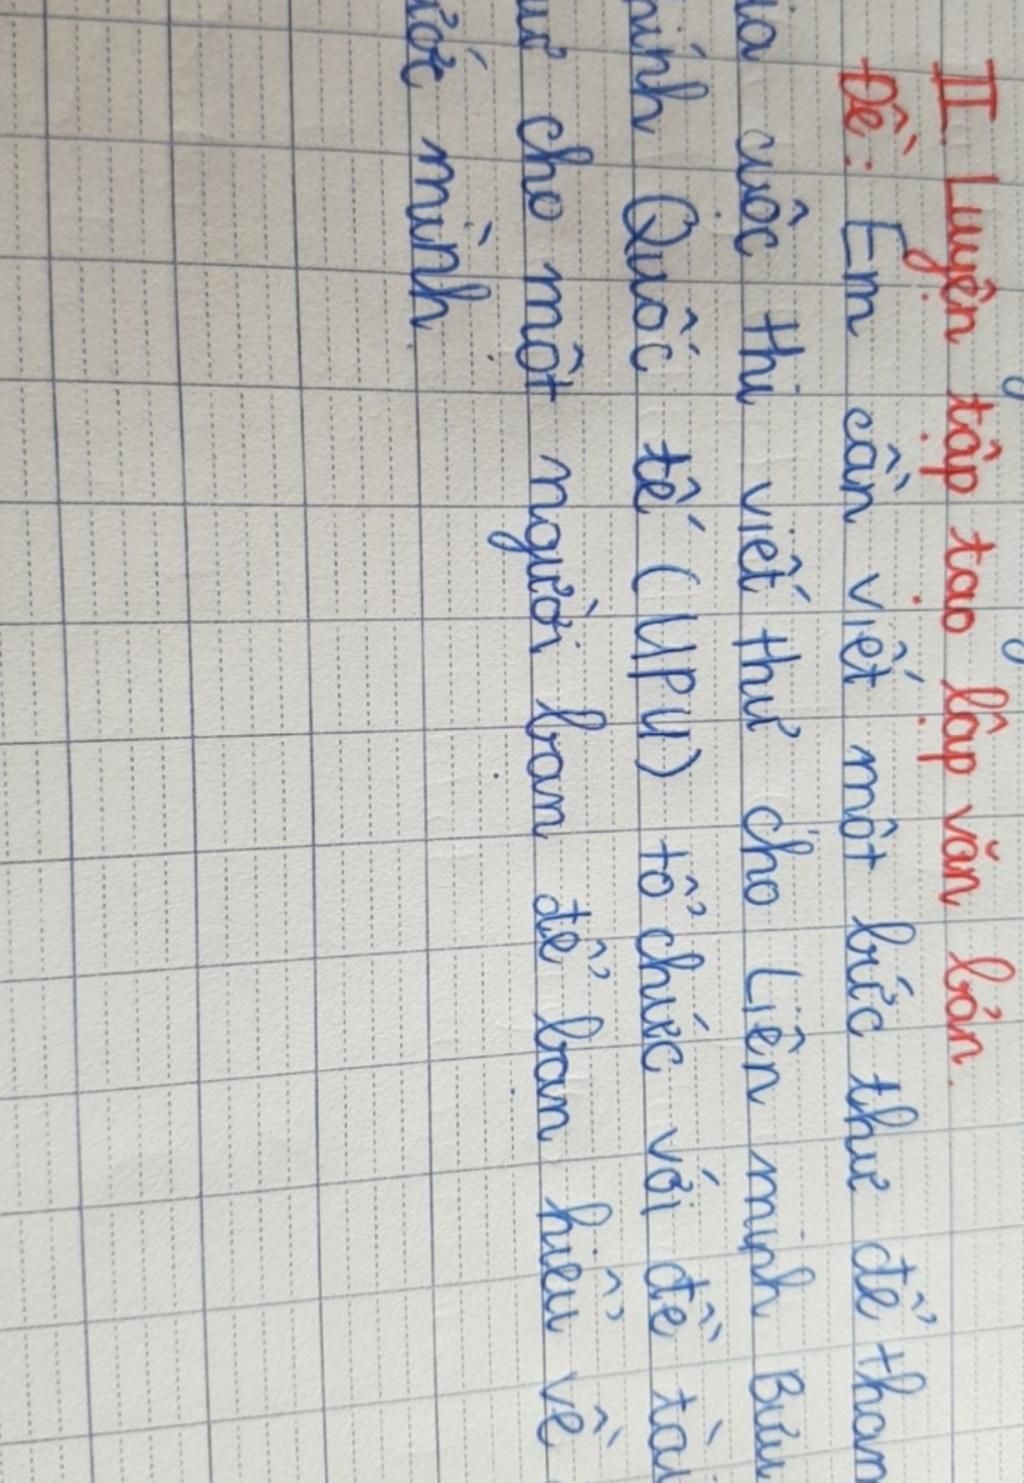 II. Luyện tập tạo lập văn bản.
Đề: Em cần viết một bức thư để tham
ia cuộc thi viết thư cho Liên minh Bưu
hính Quốc tế (UPU) tổ chức với đề tài
ư cho một người bạn để bạn hiểu về
ước mình.